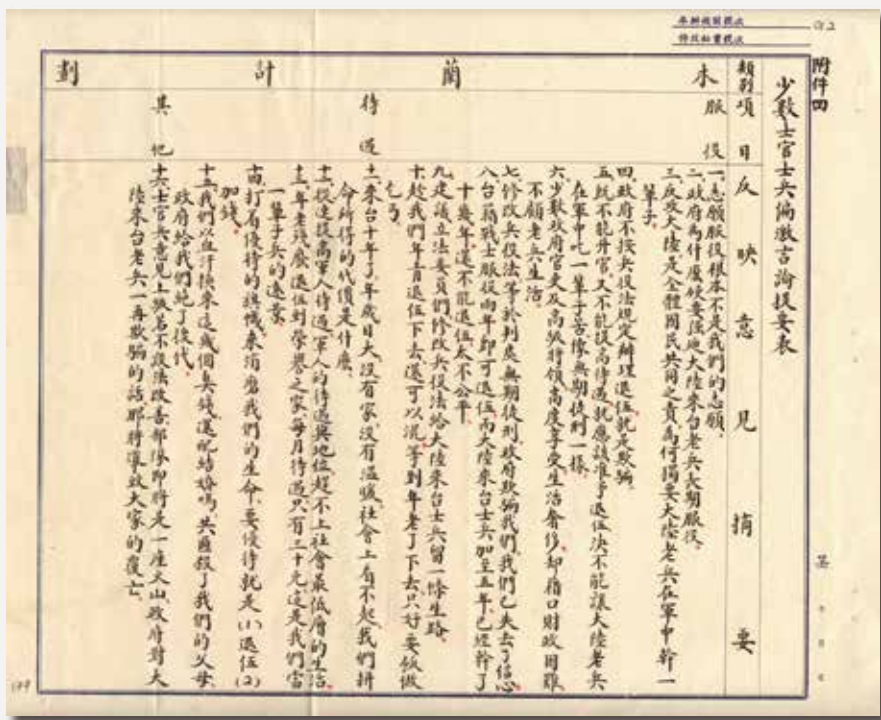 附件四
少數士官士兵偏激言論提要表
類別
項目
反映意見摘要
木蘭計劃
服役
一、志願服役根本不是我們的志願。
二、政府為什麼硬要強地大陸來台老兵長期服役。
三、反攻大陸是全體國民共同之責、為何獨要大陸老兵在軍中幹一
輩子。
四、政府不按兵役法規定辦理退伍就是欺騙。
五、既不能升官、又不能提高待遇、就應該准予退伍、決不能讓大陸老兵
在軍中吃一輩子苦像無期徒刑一樣。
六、少數政府官吏及高級將領高度享受生活奢侈、却藉口財政困難、
不顧老兵生活。
七、修改兵役法等於判處無期徒刑、政府欺騙我們、我們已失去了信心
八、台籍戰士服役兩年即可退伍、而大陸來台士兵、加至五年、已經幹了
十幾年、還不能退伍太不公平。
九、建議立法委員們修改兵役法給大陸來台士兵留一條生路。
十、趁我們年青退伍下去還可以混、等到年老了下去、只好要飯做
乞丐。
待遇
十一、來台十年了、年歲日大、沒有家、沒有溫暖、社會上看不起、我們拼
命所得的代價是什麼。
十二、從速提高軍人待遇、軍人的待遇與地位、趕不上社會最低層的生活。
十三、年老殘廢、退伍到榮譽之家、每月待遇只有三十元、這是我們當
一輩子兵的遠景。
十四、打着優待的旗幟、來消磨我們的生命、要優待就是(1)退伍(2)
加錢。
十五、我們以血汗換來這幾個臭錢、還呢結婚嗎、共匪殺了我們的父母、
政府給我們絕了後代。
其他
十六、士官兵意見上級若不設法改善、部隊即將是一座火山、政府對大
陸來台老兵一再欺騙的話、那將導致大家的覆亡。